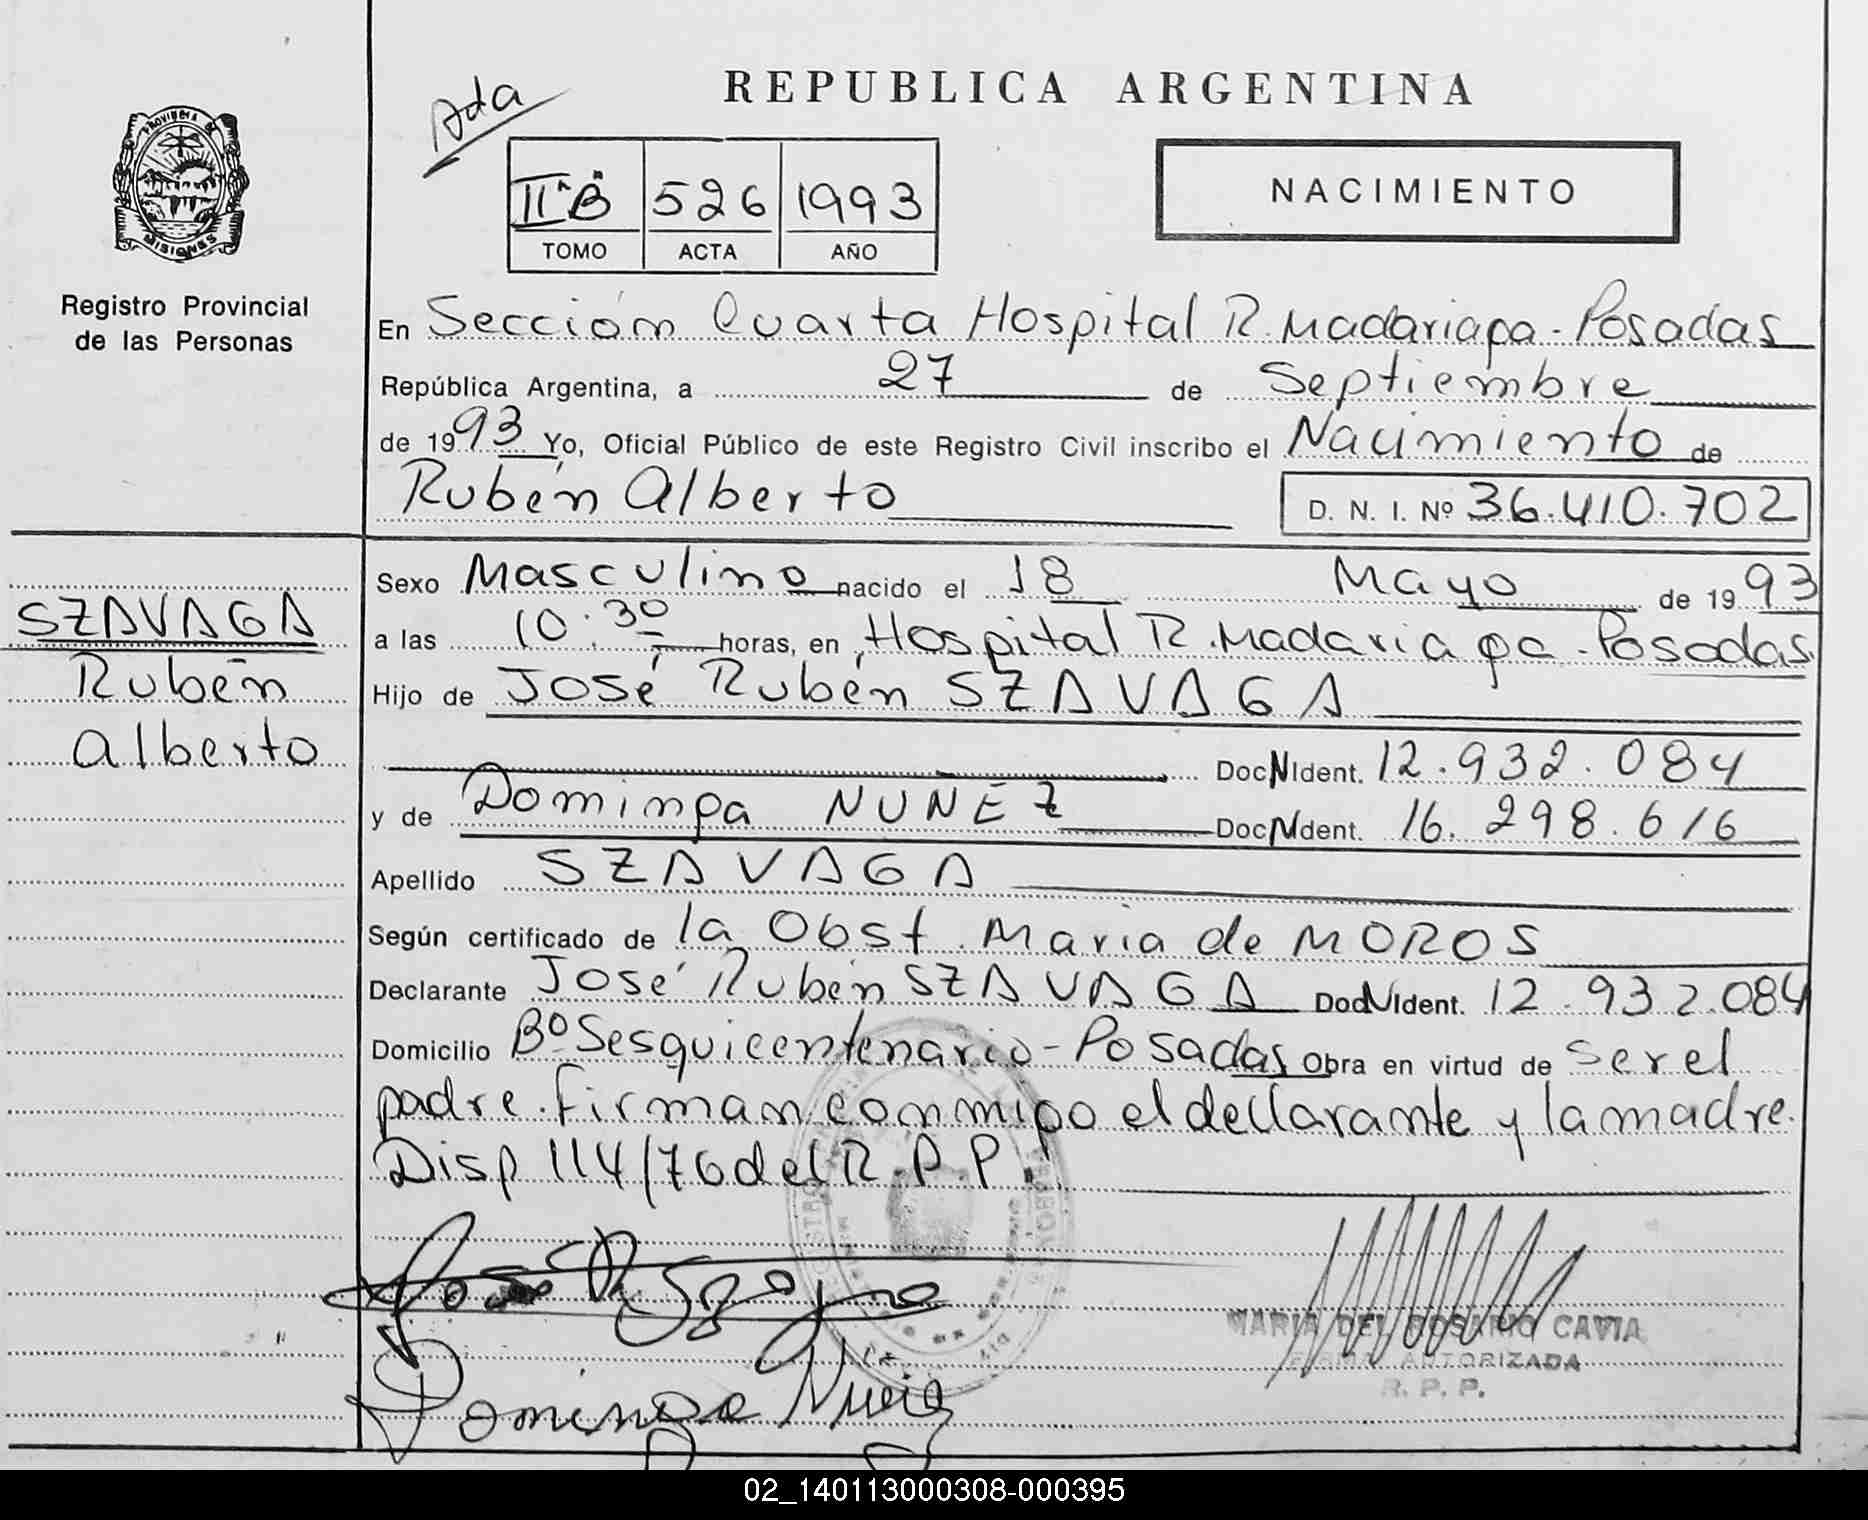 Ada
REPUBLICA ARGENTINA
PROVINCIA DE
MISIONES
II "B" 526 1993
TOMO ACTA AÑO
NACIMIENTO
Registro Provincial
de las Personas
En Sección Cuarta Hospital R. Madariaga - Posadas
República Argentina, a 27 de Septiembre
de 1993 Yo, Oficial Público de este Registro Civil inscribo el Nacimiento de
Rubén Alberto D. N. I. Nº 36.410.702
SZAVAGA
Rubén
Alberto
Sexo Masculino nacido el 18 Mayo de 1993
a las 10:30 horas, en Hospital R. Madariaga - Posadas.
Hijo de José Rubén SZAVAGA
Doc N Ident. 12.932.084
y de Dominga NUNEZ Doc N Ident. 16.298.616
Apellido SZAVAGA
Según certificado de la Obst. Maria de MOROS
Declarante José Rubén SZAVAGA Doc N Ident. 12.932.084
Domicilio Bº Sesquicentenario - Posadas Obra en virtud de ser el
padre. Firman conmigo el declarante y la madre.
Disp 114/76 del R.P.P.
José R Szavaga
Dominga Nuñez
MARIA DEL ROSARIO CAVIA
FIRMA AUTORIZADA
R. P. P.
02_140113000308-000395